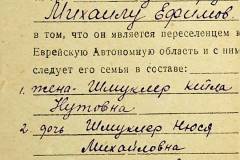 Михаилу Ефимов.
в том, что он является переселенцем в
Еврейскую Автономную область и с ним
следует его семья в составе:
1. жена - Шмуклер Кейла
Нутовна
2. дочь Шмуклер Нюся
Михайловна